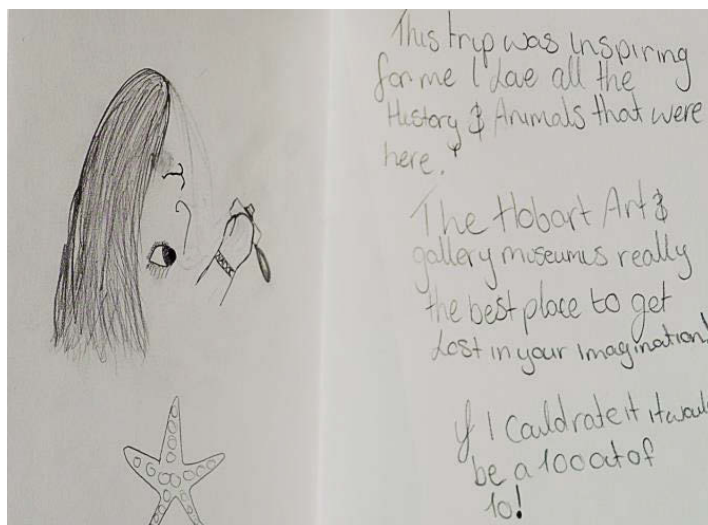 This trip was inspiring
for me I Love all the
History & Animals that were
here.
The Hobart Art &
gallery museums really
the best place to get
Lost in your imagination!
if I Could rate it it would
be a 100 out of
10!